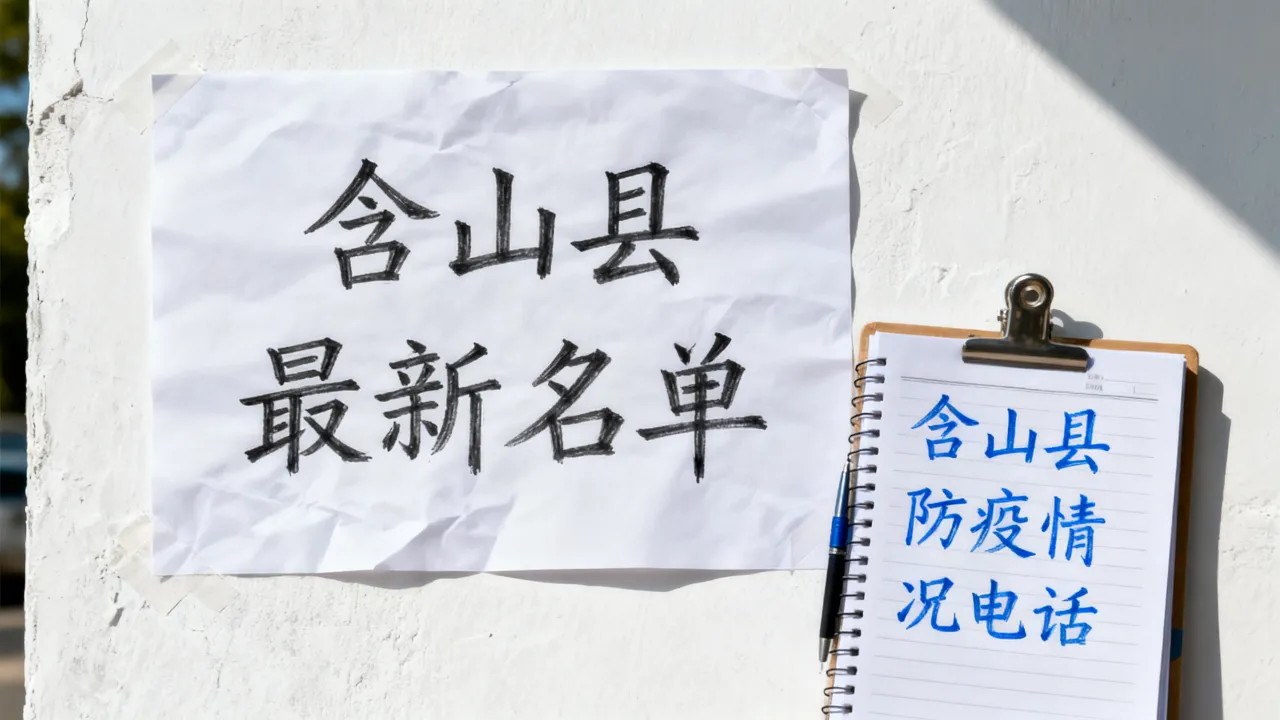 含山县
最新名单
含山县
防疫情
况电话